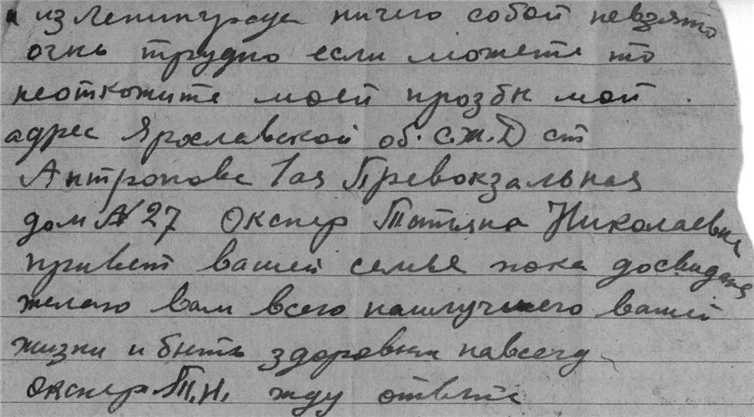 из Ленинграда ничего собой невзято
очнь трудно если можете то
неоткожите моей прозбы мой
адрес Ярославской об. С.Ж.Д ст
Антропова 1ая Превокзальная
дом № 27 Окснер Татьяна Николаевна
привет вашей семье пока досвидания
желаю вам всего наилучшего вашей
жизни и быть здоровым навсегда
Окснер Т.Н. жду ответа